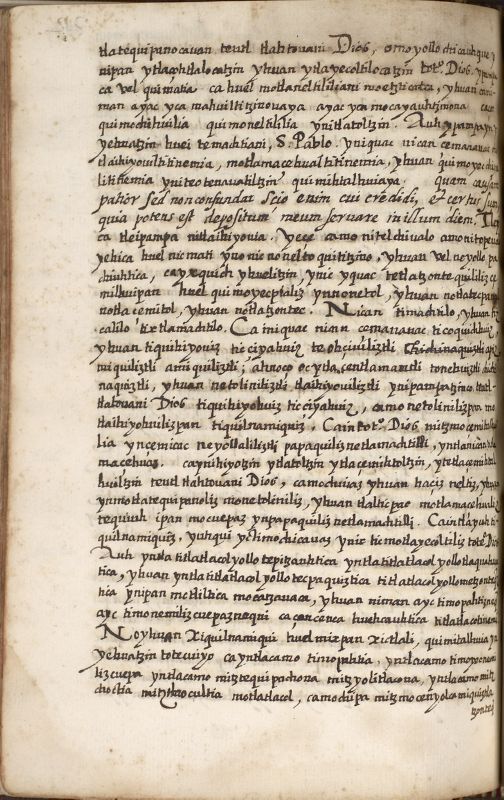 tlatequipanocauan teutl tlahtouani Dios, amo yollo chicauhque y
nipan ytlaçohtlalocatzin yhuan ytlayecoltilocatzin totº. Dios. ypampa
ca vel quimatia ca huel motlaneltililiani moetztica, yhuan
man ayac yca mahuiltitzinouaya ayac yca mocayauhtzinoua
qui mochihuilia qui moneltililia ynitlatoltzin. Auh ypampa yn
yehuatzin huei temachtiani, S. Pablo. yniquac nican cemanauac
tlaihiyouiltitinemia, motlamacehualtitinemia, yhuan qui moyec
litinemia yniteotenauatiltzin quimihtalhuiaya quam causam
patior sed non confundar scio enim cui credidi, et certus sum
quia potens est depositum meum seruare in illum diem.
ca tleipampa nitlaihiyouia. yece camo nitechiualo amonitopeualo
yehica huel nicmati yuo nicnonelto quitizino, yhuan vel noyollo pa
chiuhtica, ca yxquich yhuelitzin, ynic yquac tetlatzontequililiz
milhuipan huel quimoyecpializ ynnonetol, yhuan notlatecpan
notlacemitol, yhuan notlatzontec. Nican timachtilo, yhuan
calilo titetlamachtilo. Ca in iquac nican cemanauac ticoquichhuiz,
yhuan tiquihiyouiz ticciyahuiz teohçiuiliztli chichinaquiztli
miquiliztli amiquiliztli; ahnoço oc ytla centlamantli tonehuiztli
naquiztli, yhuan netoliniliztli tlaihiyouiliztli ynipampatzinco teutl
tlatouani Dios tiquihiyohuiz ticciyahuiz, camo netoliniliz pan
tlaihiyohuilizpan tiquilnamiquiz. Cain totº. Dios mitzmocemitalhui
lia yncemicac neyollaliliztli papaquiliz netlamachtilli, yntlanican
macehuaz. ca ynihiyotzin ytlatoltzin ytlaçemihtoltzin, ytetlacemihtal
huiltzin teutl tlahtouani Dios, camochiuaz yhuan haçiz neltiz, yhuan
ynmotlatequipanoliz monetoliniliz, yhuan tlalticpac motlamacehualiz
tequiuh ipan mocuepaz ynpapaquiliz netlamachtilli. Caintlayuhti
quilnamiquiz, yuhqui yctimochicauaz ynic ticmotlayecoltiliz totº. Dios
Auh yntla titlatlacolyollotepitzauhtica yntla titlatlacolyollotlaquahuac
tica, yhuan yntla titlatlacolyollotecpaquiztica titlatlacolyollometzontic
tica ynipan metlitica mocatzauaca, yhuan niman ayc timopahtiznequi
ayc timonemilizcuepaznequi caçancenca tuehcauhtica titlatlacotinemi
No yhuan Xiquilnamiqui huel mixpan xictlali, quimitalhuia yn
yehuatzin totecuiyo ca yntlacamo timopahtia, yntlacamo timoyonemi
lizcuepa yntlacamo mitztequipachoua mitzyolitlacoua, yntlacamo mitz
choctia mitztlaocultia motlatlacol, camochipa mitzmocenyolcamiquizti
tzontez